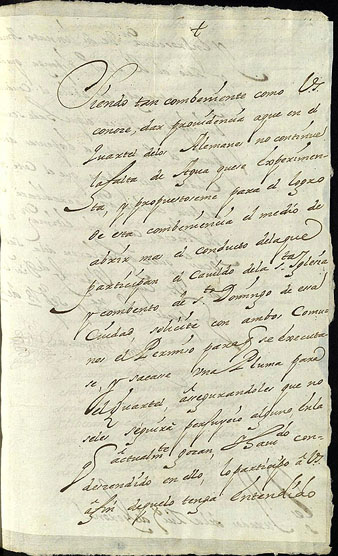 Siendo tan combeniente como V.S.
conoze, dar providencia a que en el
Quartel delos Alemanes no continue
la falta de Agua que se experimen-
ta, y propuestoseme para el logro
de esta combeniencia el medio de
abrir mas el conducto dela que
participan el Cavildo dela Sta. Iglesia
y combento de Sto. Domingo de esa
Ciudad solicité con ambos Comu-
nes el Permiso para q se executa-
se, y sacase una Pluma para
el Quartel, asegurandoles que no
seles seguirá perjuycio alguno en la
q actualmte gozan, y havdo con-
descendido en ello, lo participo â V.S.
afin de que lo tenga entendido